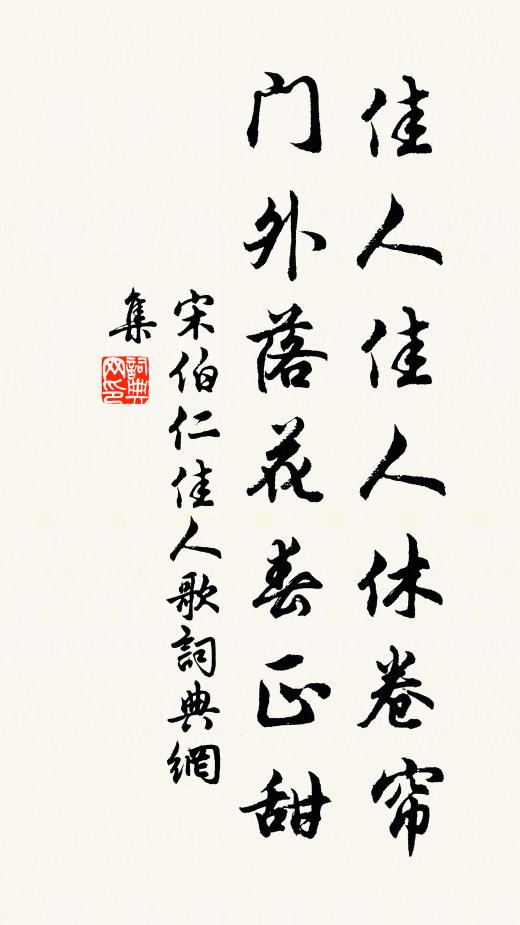 佳人佳人休卷帘
门外落花春正甜
宋伯仁佳人歌詞典網
集
詞典网印